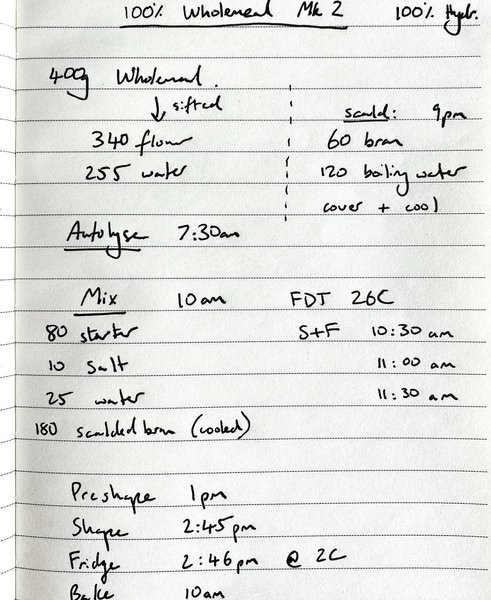 100% Wholemeal Mk 2 100% Hydr.
400g Wholemeal.
↓ sifted
340 flour
255 water
scald: 9pm
60 bran
120 boiling water
cover + cool
Autolyse 7:30am
Mix 10am FDT 26C
80 starter S+F 10:30 am
10 Salt 11:00 am
25 water 11:30 am
180 scalded bran (cooled)
Preshape 1pm
Shape 2:45pm
Fridge 2:46pm @ 2C
Bake 10am